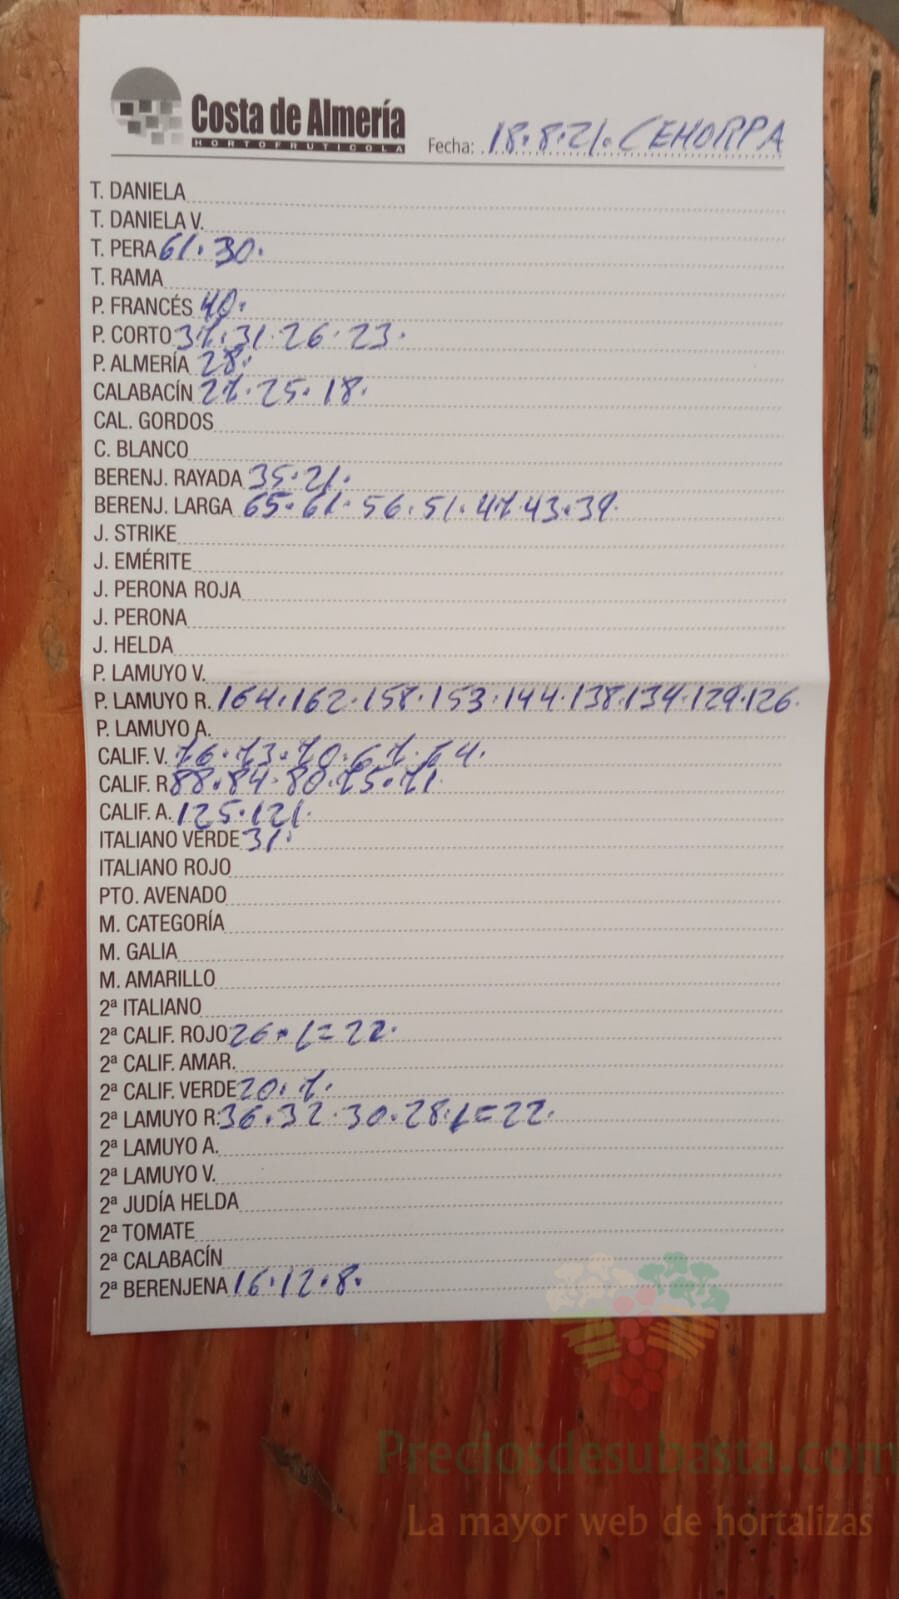 Costa de Almería
HORTOFRUTICOLA
Fecha: 18.8.21. CEHORPA
T. DANIELA
T. DANIELA V.
T. PERA 61. 30.
T. RAMA
P. FRANCÉS 40.
P. CORTO 37. 31. 26. 23.
P. ALMERÍA 28.
CALABACÍN 27. 25. 18.
CAL. GORDOS
C. BLANCO
BERENJ. RAYADA 35. 21.
BERENJ. LARGA 65. 61. 56. 51. 47. 43. 39.
J. STRIKE
J. EMÉRITE
J. PERONA ROJA
J. PERONA
J. HELDA
P. LAMUYO V.
P. LAMUYO R. 164. 162. 158. 153. 144. 138. 134. 129. 126.
P. LAMUYO A.
CALIF. V. 76. 73. 70. 67. 64.
CALIF. R 88. 84. 80. 75. 71.
CALIF. A. 125. 121.
ITALIANO VERDE 31.
ITALIANO ROJO
PTO. AVENADO
M. CATEGORÍA
M. GALIA
M. AMARILLO
2ª ITALIANO
2ª CALIF. ROJO 26. = 22.
2ª CALIF. AMAR.
2ª CALIF. VERDE 20. 7.
2ª LAMUYO R. 36. 32. 30. 28. = 22.
2ª LAMUYO A.
2ª LAMUYO V.
2ª JUDÍA HELDA
2ª TOMATE
2ª CALABACÍN
2ª BERENJENA 16. 12. 8.
Preciosdesubasta.com
La mayor web de hortalizas